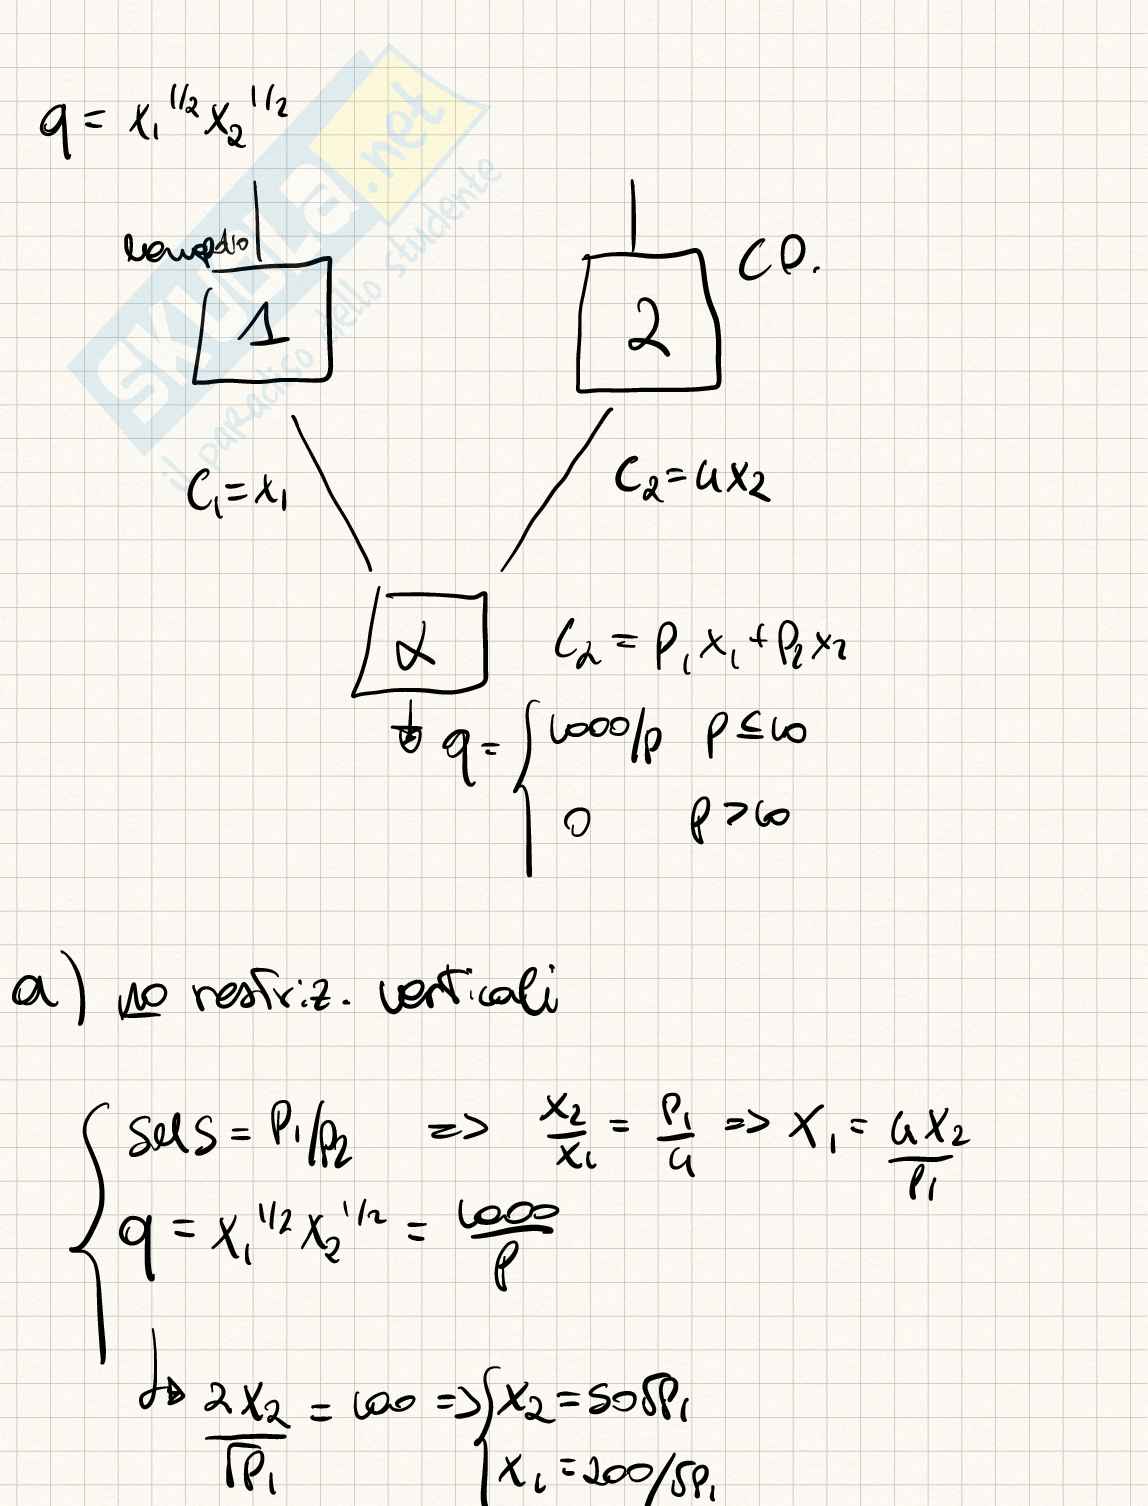 q = x₁^1/2 x₂^1/2
SKUOLA.net
il paradiso dello studente
1
2
CP.
C₁ = x₁
C₂ = 4x₂
α
C₂ = P₁x₁ + P₂x₂
q = { 1000/p p ≤ 10
0 p > 10
a) no restriz. verticali
SdS = P₁/P₂ => x₂/x₁ = P₁/4 => x₁ = 4x₂/P₁
q = x₁^1/2 x₂^1/2 = 1000/p
2x₂/√P₁ = 100 => { x₂ = 50√P₁
x₁ = 200/√P₁